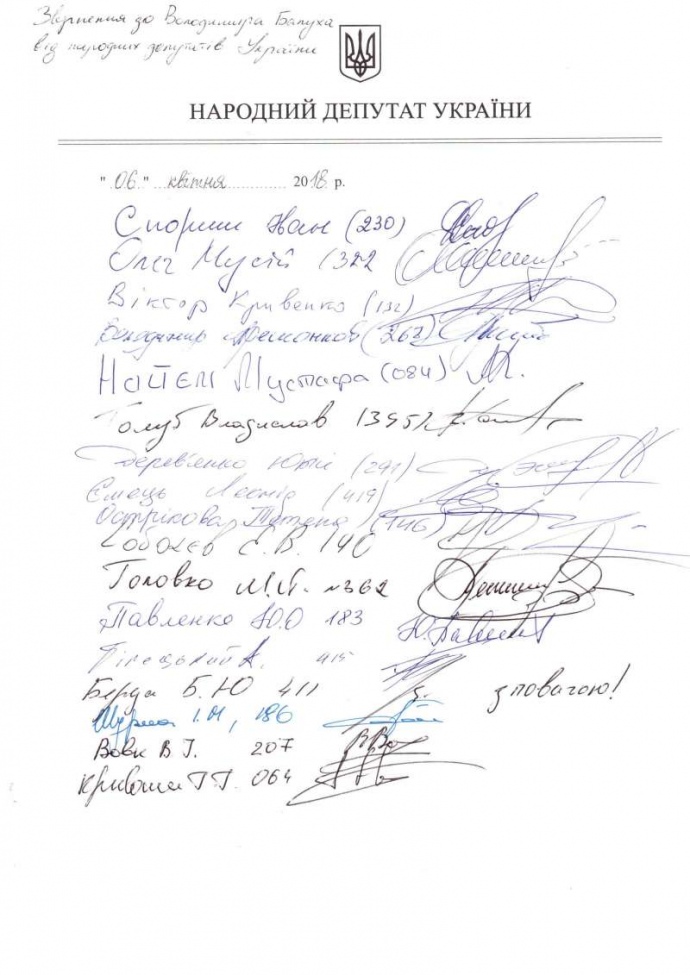 Звернення до Володимира Балуха
від народних депутатів України
НАРОДНИЙ ДЕПУТАТ УКРАЇНИ
"06" квітня 2018 р.
Спориш Іван (230)
Олег Мусій (322
Віктор Кривенко (132)
Володимир (262)
Найєм Мустафа (084)
Голуб Владислав (395)
Дерев'янко Юрій (291)
Ємець Леонід (419)
Острікова Тетяна (146)
Соболєв С.В. 140
Головко М.Й. №362
Павленко Ю.О 183 Ю.Павленко
Білецький А. 415
Берда Б.Ю 411 з повагою!
Шурма І.М, 186
Вовк В І. 207
Кривоша Г.Г. 064